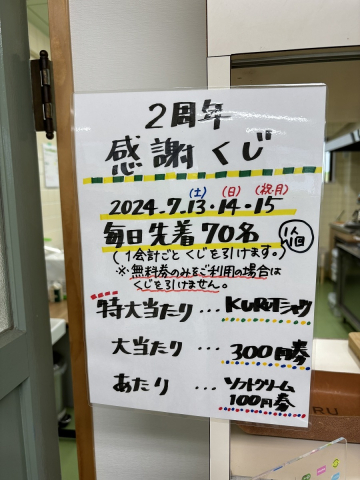 2周年
感謝くじ
(土) (日) (祝・月)
2024.7.13・14・15
毎日先着70名
1人1回
(1会計ごとくじを引けます。)
※無料券のみをご利用の場合は
くじを引けません。
特大当たり・・・KURUTシャツ
大当たり・・・300円券
あたり・・・ソフトクリーム
100円券
RU